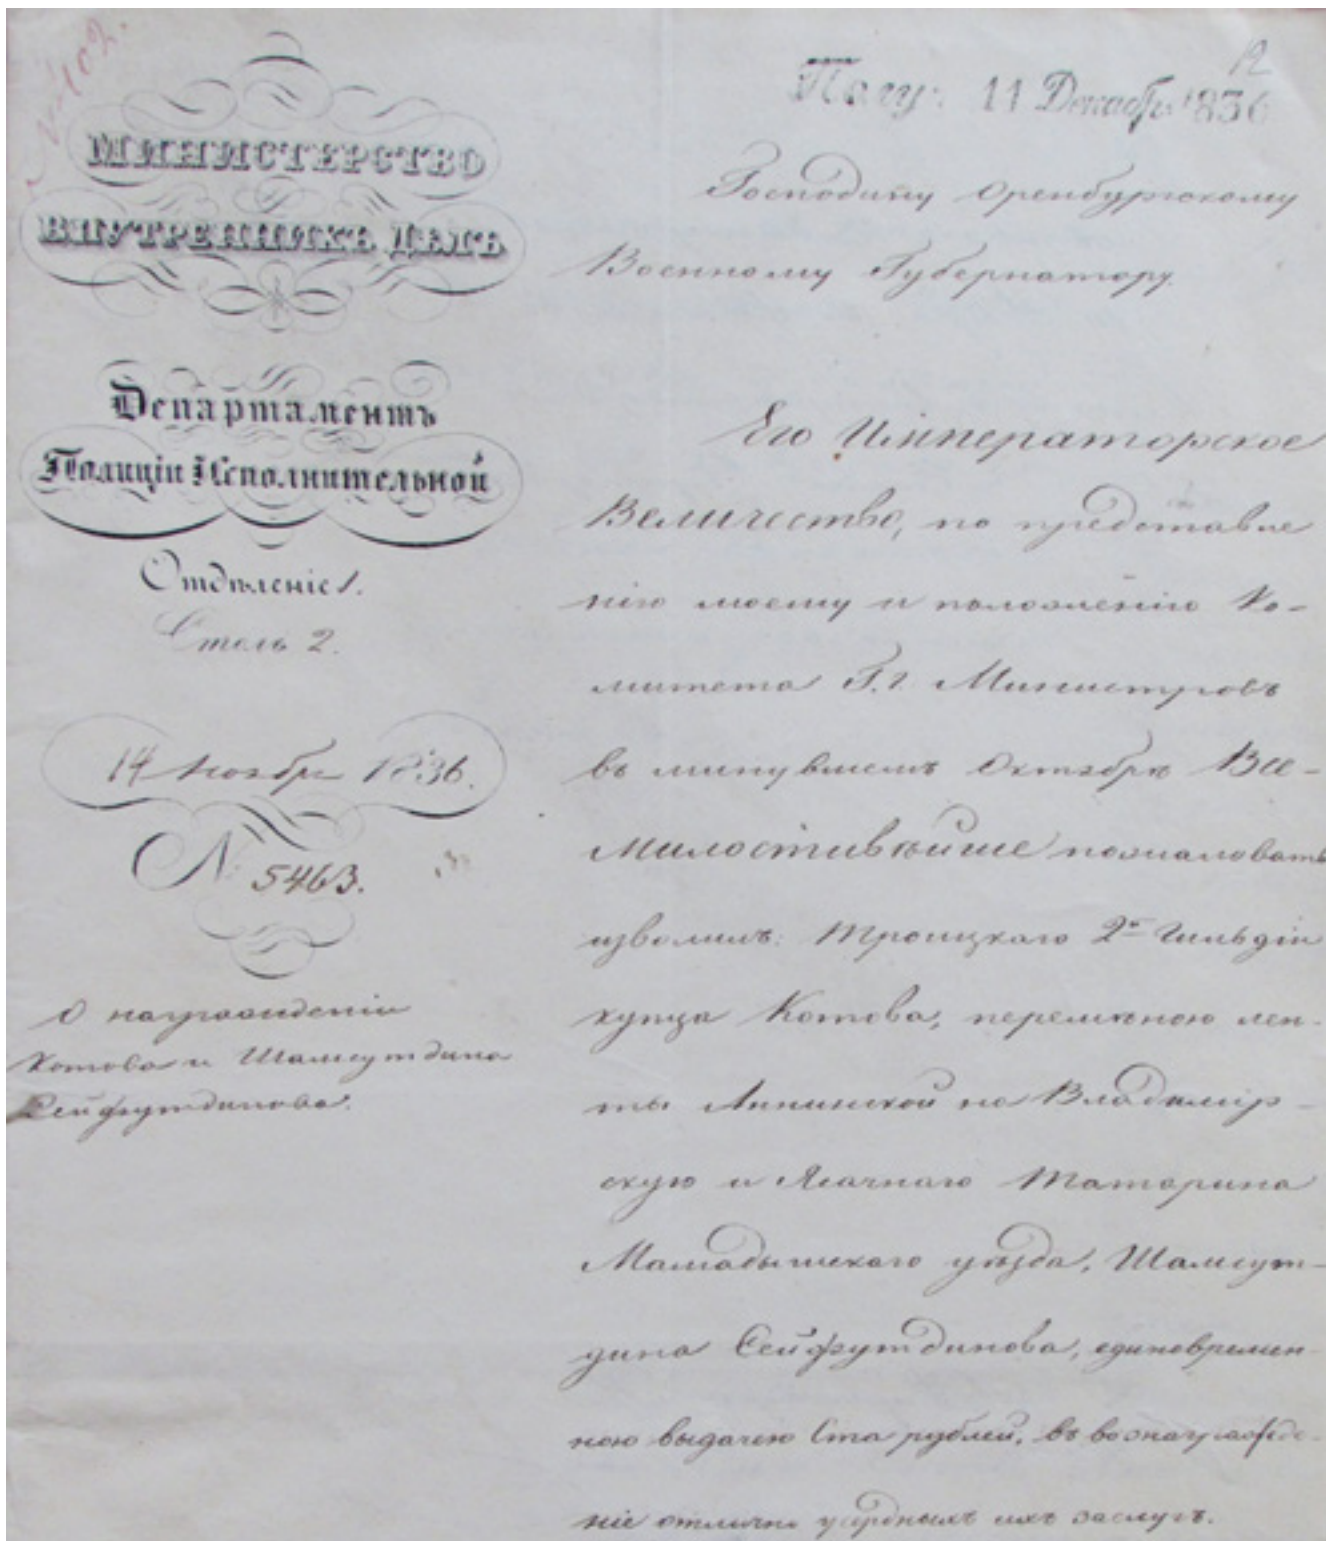 № 102.
12
Полу: 11 Декабр. 1836
МИНИСТЕРСТВО
ВНУТРЕННИХЪ ДѢЛЪ
Департаментъ
Полиціи Исполнительной
Отдѣленіе 1.
Столъ 2.
14 Ноября 1836.
N. 5463.
О награжденіи
Котова и Шамсутдина
Сейфутдинова.
Господину Оренбургскому
Военному Губернатору.
Его Императорское
Величество, по представле
нію моему и положенію Ко-
митета Г.г. Министровъ
въ минувшемъ Октябрѣ Все-
Милостивѣйше пожаловать
изволилъ: Троицкаго 2й Гильдіи
купца Котова, перемѣною лен-
ты Аннинской на Владимір-
скую и Ясачнаго Татарина
Мамадышскаго уѣзда, Шамсут-
дина Сейфутдинова, единовремен-
ною выдачею Ста рублей, въ вознагражде-
ніе отлично усердныхъ ихъ заслугъ.